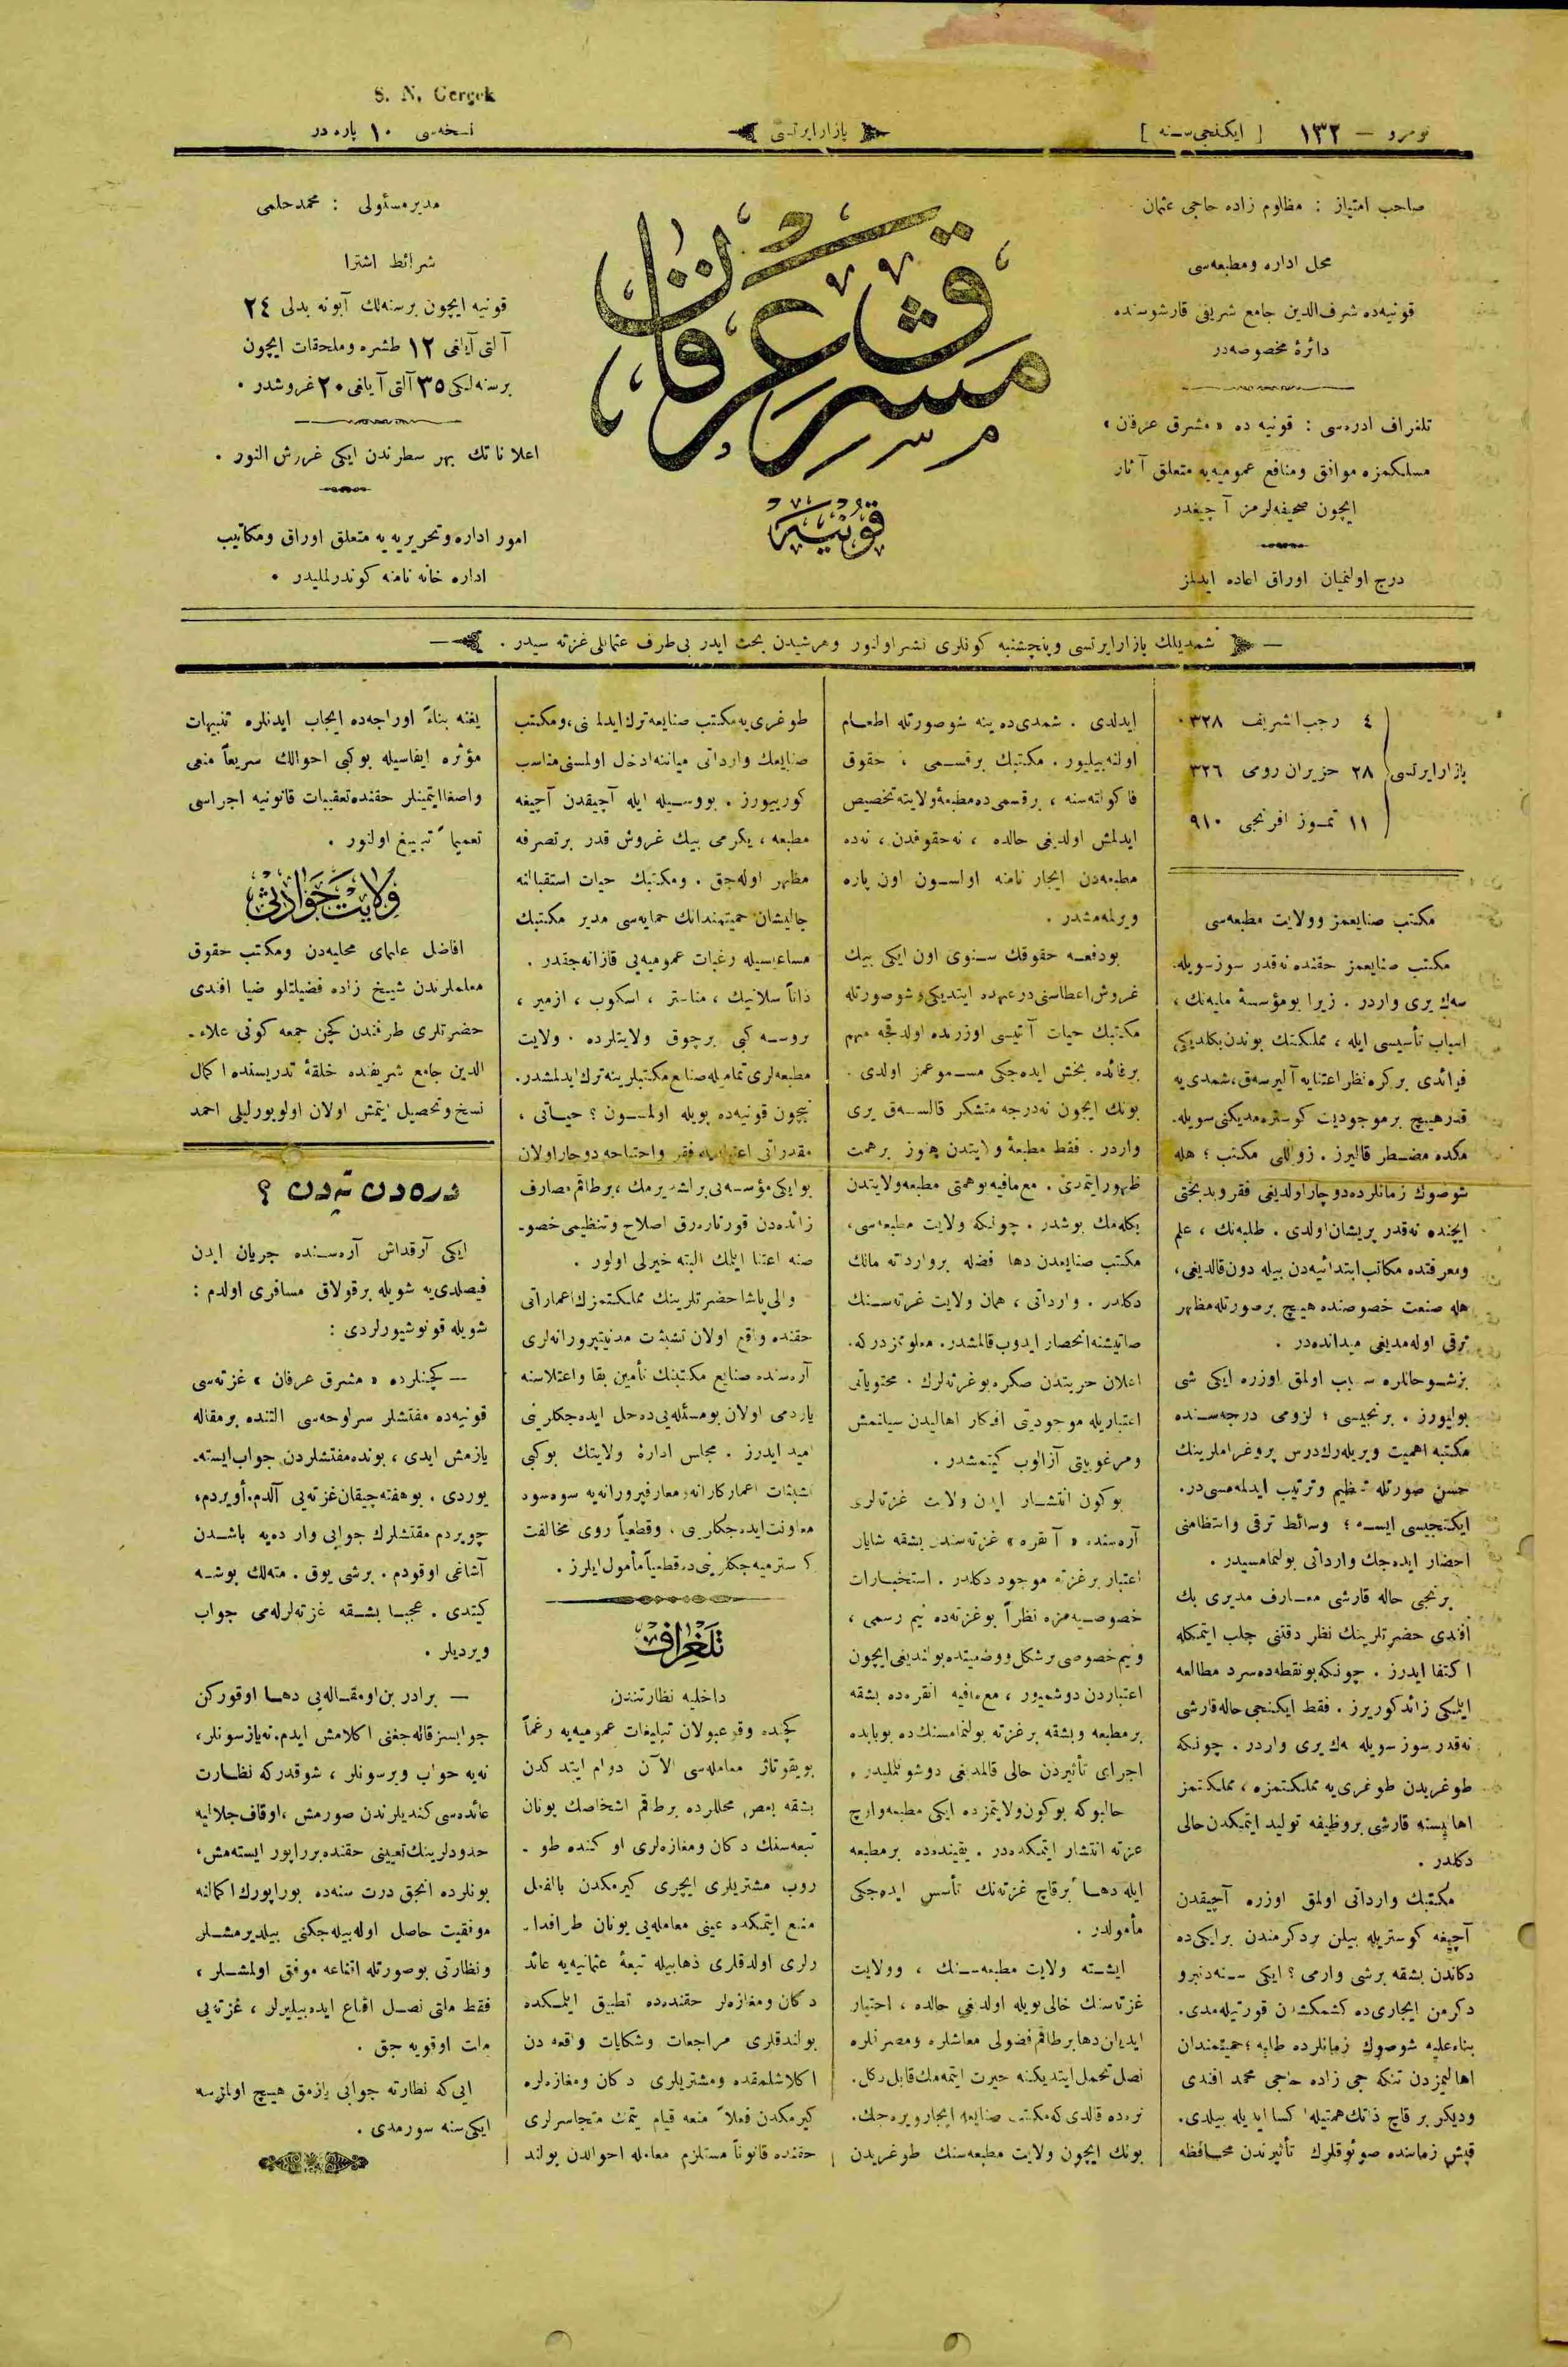 S. N. Gerçek
نومرو — ١٣٢ [ ایکنجی سنه ]
بازارایرتسی
نسخه‌سی ١٠ پاره‌در
صاحب امتیاز : مظلوم زاده حاجی عثمان
محل اداره ومطبعه‌سی
قونیه‌ده شرف‌الدین جامع شریفی قارشوسنده
دائرۀ مخصوصه‌در
تلغراف ادره‌سی : قونیه ده «مشرق عرفان»
مسلکمزه موافق ومنافع عمومیه‌یه متعلق آثار
ایچون صحیفه‌لرمز آچیقدر
درج اولنمیان اوراق اعاده ایدلمز
مشرق عرفان
قونیه
مدیر مسئولی : محمد حلمی
شرائط اشترا
قونیه ایچون برسنه‌لك آبونه بدلی ٢٤
آلتی آیلغی ١٢ طشره وملحقات ایچون
برسنه‌لكی ٣٥ آلتی آیلغی ٢٠ غروشدر .
اعلاناتك بهر سطرندن ایکی غروش النور .
امور اداره وتحریریه‌یه متعلق اوراق ومکاتیب
اداره خانه نامنه کوندرلملیدر .
شمدیلك بازارایرتسی وپنچشنبه کونلری نشر اولنور وهرشیدن بحث ایدر بی‌طرف عثمانلی غزته سیدر .
٤ رجب الشریف ٣٢٨
بازارایرتسی ٢٨ حزیران رومی ٣٢٦
١١ تموز افرنجی ٩١٠
مکتب صنایعمز وولایت مطبعه‌سی
مکتب صنایعمز حقنده نه‌قدر سوز سویله‌
سه‌ك یری واردر . زیرا بو مؤسسۀ مایه‌نك ،
اسباب تأسیسی ایله ، مملکتك بوندن بکلدیکی
فوائدی بر کره نظر اعتنایه آلیرسه‌ق، شمدی‌یه
قدر هیچ بر موجودیت کوستره‌مدیکنی سویله‌
مکده مضطر قالیرز . زواللی مکتب ؛ هله
شوصوك زمانلرده دوچار اولدیغی فقر وبدبختی
ایچنده نه‌قدر پریشان اولدی . طلبه‌نك ، علم
ومعرفتده مکاتب ابتدائیه‌دن بیله دون قالدیغی،
هله صنعت خصوصنده هیچ بر صورتله مظهر
ترقی اوله‌مدیغی میدانده‌در .
بز شو حاللره سبب اولمق اوزره ایکی شی
بولیورز . برنجیسی ؛ لزومی درجه‌سنده
مکتبه اهمیت ویریله‌رك درس پروغراملرینك
حسن صورتله تنظیم وترتیب ایدلمه‌مسی‌در.
ایکنجیسی ایسه ؛ وسائط ترقی وانتظامنی
احضار ایده‌جك وارداتی بولنمامسیدر .
برنجی حاله قارشی معارف مدیری بك
افندی حضرتلرینك نظر دقتنی جلب ایتمکله
اکتفا ایدرز . چونکه بو نقطه‌ده سرد مطالعه
ایلمکی زائد کوریرز . فقط ایکنجی حاله قارشی
نه‌قدر سوز سویله‌سه‌ك یری واردر . چونکه
طوغریدن طوغری‌یه مملکتمزه ، مملکتمز
اهالیسنه قارشی بر وظیفه تولید ایتمکدن خالی
دکلدر .
مکتبك وارداتی اولمق اوزره آچیقدن
آچیغه کوستریله بیلن بر دکرمندن بر ایکی ده
دکاندن بشقه برشی وارمی ؟ ایکی سنه‌دنبرو
دکرمن ایجاری‌ده کشمکشدن قورتیله‌مدی.
بناءعلیه شوصوك زمانلرده طلبه ؛ حمیتمندان
اهالیمزدن تنکه جی زاده حاجی محمد افندی
ودیکر بر قاچ ذاتك همتیله اکسا ایدیله بیلدی.
قیش زماننده صوئوقلرك تأثیرندن محافظه
ایدلدی . شمدی‌ده ینه شوصورتله اطعام
اولنه‌بیلیور . مکتبك بر قسمی ، حقوق
فاکولته‌سنه ، بر قسمی ده مطبعۀ ولایته تخصیص
ایدلمش اولدیغی حالده ، نه حقوقدن ، نه‌ده
مطبعه‌دن ایجار نامنه اولسون اون پاره
ویرلمه‌مشدر .
بودفعه حقوقك سنوی اون ایکی بیك
غروش اعطاسنی درعهده ایتدیکی وشوصورتله
مکتبك حیات آتیسی اوزرنده اولدقجه مهم
بر فائده بخش ایده‌جکی مسموعمز اولدی .
بونك ایچون نه‌درجه متشکر قالسه‌ق یری
واردر . فقط مطبعۀ ولایتدن هنوز بر همت
ظهور ایتمدی . مع‌مافیه بو همتی مطبعه ولایتدن
بکله‌مك بوشدر . چونکه ولایت مطبعه‌سی ،
مکتب صنایعدن دها فضله بر وارداته مالك
دکلدر . وارداتی ، همان ولایت غزته‌سنك
صاتیشنه انحصار ایدوب قالمشدر. معلومزدرکه.
اعلان حریتدن صکره بو غزته‌لرك . محتویاتی
اعتباریله موجودیتی افکار اهالیدن سیلنمش
ومرغوبیتی آزالوب کیتمشدر .
بوکون انتشار ایدن ولایت غزته‌لری
آره‌سنده « آنقره » غزته‌سندن بشقه شایان
اعتبار بر غزته موجود دکلدر . استخبارات
خصوصیه‌مزه نظراً بو غزته‌ده نیم رسمی ،
ونیم خصوصی بر شکل ووضعیتده بولندیغی ایچون
اعتباردن دوشمیور ، مع‌مافیه انقره‌ده بشقه
بر مطبعه وبشقه بر غزته بولنمامسنك ده بوبابده
اجرای تأثیردن خالی قالمدیغی دوشونلملیدر .
حالبوکه بوکون ولایتمزده ایکی مطبعه واوچ
غزته انتشار ایتمکده‌در . یقینده‌ده بر مطبعه
ایله دها برقاچ غزته‌نك تأسس ایده‌جکی
مأمولدر .
ایشته ولایت مطبعه‌سنك ، وولایت
غزته‌سنك حالی بویله اولدیغی حالده ، اختیار
ایدیلن دها برطاقم فضولی معاشلره ومصرفلره
نصل تحمل ایتدیکنه حیرت ایتمه‌مك قابل دکل.
نرده قالدی که مکتب صنایعه ایجار ویره‌جك.
بونك ایچون ولایت مطبعه‌سنك طوغریدن
طوغری‌یه مکتب صنایعه ترك ایدلمنی، ومکتب
صنایعك وارداتی میاننه ادخل اولمسنی مناسب
کورییورز . بو وسیله ایله آچیقدن آچیغه
مطبعه ، یکرمی بیك غروش قدر بر تصرفه
مظهر اوله‌جق . ومکتبك حیات استقبالنه
چالیشان حمیتمندانك حمایه‌سی مدیر مکتبك
مساعیسیله رغبات عمومیه‌یی قازانه‌جقدر .
ذاتاً سلانیك ، مناستر ، اسکوب ، ازمیر ،
بروسه کبی برچوق ولایتلرده . ولایت
مطبعه‌لری تمامیله صنایع مکتبلرینه ترك ایدلمشدر.
نیچون قونیه‌ده بویله اولمسون ؟ حیاتی ،
مقدراتی اعتباریله فقر واحتیاجه دوچار اولان
بو ایکی مؤسسه‌یی براشدیرمك ، برطاقم مصارف
زائده‌دن قورتاره‌رق اصلاح وتنظیمی خصو-
صنه اعتنا ایلمك البته خیرلی اولور .
والی پاشا حضرتلرینك مملکتمزك اعماراتی
حقنده واقع اولان تشبثت مدنیتپرورانه‌لری
آره‌سنده صنایع مکتبنك تأمین بقا واعتلاسنه
یاردمی اولان بو مسئله‌یی ده حل ایده‌جکلرینی
امید ایدرز . مجلس ادارۀ ولایتك بوکبی
تشبثات اعمارکارانه ومعارفپرورانه‌یه سوه‌سوه
معاونت ایده‌جکلرینی . وقطعیاً روی مخالفت
کوسترمیه‌جکلرینی‌ده قطعیاً مأمول ایلرز .
تلغراف
داخلیه نظارتندن
کچنده وقوعبولان تبلیغات عمومیه‌یه رغماً
بویقوتاژ معامله‌سی الآن دوام ایتدکدن
بشقه بعض محللرده برطاقم اشخاصك یونان
تبعه‌سنك دکان ومغازه‌لری اوکنده طو -
روب مشتریلری ایچری کیرمکدن بالفعل
منع ایتمکده عینی معامله‌یی یونان طرافدا-
رلری اولدقلری ذهابیله تبعۀ عثمانیه‌یه عائد
دکان ومغازه‌لر حقنده‌ده تطبیق ایلمکده
بولندقلری مراجعات وشکایات واقعه دن
اکلاشلمقده ومشتریلری دکان ومغازه‌لره
کیرمکدن فعلاً منعه قیام ایتمك متجاسرلری
حقنده قانوناً مستلزم معامله احوالدن بولند
یغنه بناءً اوراجه‌ده ایجاب ایدنلره تنبیهات
مؤثره ایفاسیله بوکبی احوالك سریعاً منعی
واصغا ایتمینلر حقنده تعقیبات قانونیه اجراسی
تعمیماً تبلیغ اولنور .
ولایت حوادثی
افاضل علمای محلیه‌دن ومکتب حقوق
معلملرندن شیخ زاده فضیلتلو ضیا افندی
حضرتلری طرفندن کچن جمعه کونی علاء-
الدین جامع شریفنده خلقۀ تدریسنده اکمال
نسخ وتحصیل ایتمش اولان اولوبورلیلی احمد
دره‌دن تپه‌دن ؟
ایکی آرقداش آره‌سنده جریان ایدن
فیصلدی‌یه شویله بر قولاق مسافری اولدم :
شویله قونوشیورلردی :
— کچنلرده « مشرق عرفان » غزته‌سی
قونیه‌ده مفتشلر سرلوحه‌سی التنده بر مقاله
یازمش ایدی ، بونده مفتشلردن جواب ایسته‌
یوردی . بو هفته چیقان غزته‌یی آلدم. أویردم،
چویردم مفتشلرك جوابی وارده‌یه باشدن
آشاغی اوقودم . برشی یوق . متلك بوشه
کیتدی . عجبا بشقه غزته‌لرله‌می جواب
ویردیلر .
— برادر بن او مقاله‌یی دها اوقورکن
جوابسز قاله‌جغنی اکلامش ایدم. نه یازسونلر،
نه‌یه جواب ویرسونلر ، شوقدرکه نظارت
عائده‌سی کندیلرندن صورمش ، اوقاف جلالیه
حدودلرینك تعیینی حقنده بر راپور ایسته‌مش،
بونلرده انجق درت سنه‌ده بو راپورك اکمالنه
موفقیت حاصل اوله‌بیله‌جکنی بیلدیرمشلر
ونظارتی بوصورتله اقناعه موفق اولمشلر ،
فقط ملتی نصل اقناع ایده‌بیلیرلر ، غزته‌یی
ملت اوقویه جق .
ایی که نظارته جوابی یازمق هیچ اولمزسه
ایکی سنه سورمدی .